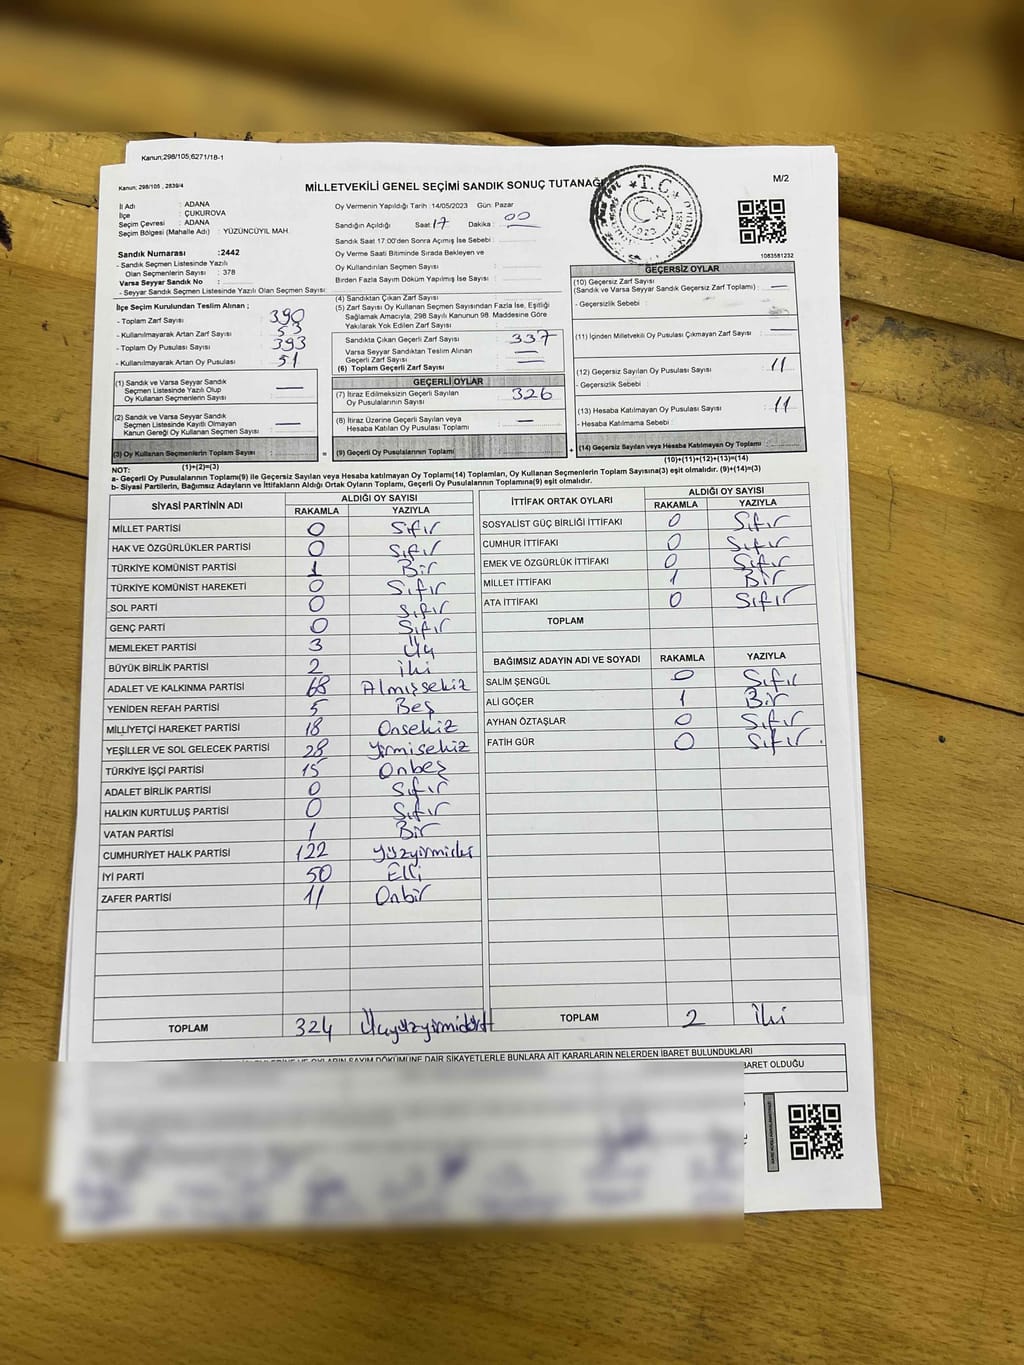 Kanun;298/105,6271/18-1
Kanun; 298/105 , 2839/4
MİLLETVEKİLİ GENEL SEÇİMİ SANDIK SONUÇ TUTANAĞI
M/2
İl Adı : ADANA
İlçe : ÇUKUROVA
Seçim Çevresi : ADANA
Seçim Bölgesi (Mahalle Adı) : YÜZÜNCÜYIL MAH.
Sandık Numarası :2442
- Sandık Seçmen Listesinde Yazılı
Olan Seçmenlerin Sayısı : 378
Varsa Seyyar Sandık No :
- Seyyar Sandık Seçmen Listesinde Yazılı Olan Seçmen Sayısı:
Oy Vermenin Yapıldığı Tarih :14/05/2023 Gün: Pazar
Sandığın Açıldığı Saat: 17 Dakika : 00
Sandık Saat 17.00'den Sonra Açımış İse Sebebi :
Oy Verme Saati Bitiminde Sırada Bekleyen ve
Oy Kullandırılan Seçmen Sayısı :
Birden Fazla Sayım Döküm Yapılmış İse Sayısı :
T.C.
1923
1083581232
İlçe Seçim Kurulundan Teslim Alınan ;
- Toplam Zarf Sayısı : 390
- Kullanılmayarak Artan Zarf Sayısı : 53
- Toplam Oy Pusulası Sayısı : 393
- Kullanılmayarak Artan Oy Pusulası : 51
(1) Sandık ve Varsa Seyyar Sandık
Seçmen Listesinde Yazılı Olup
Oy Kullanan Seçmenlerin Sayısı : —
(2) Sandık ve Varsa Seyyar Sandık
Seçmen Listesinde Kayıtlı Olmayan
Kanun Gereği Oy Kullanan Seçmen Sayısı : —
(3) Oy Kullanan Seçmenlerin Toplam Sayısı :
(1)+(2)=(3)
(4) Sandıktan Çıkan Zarf Sayısı :
(5) Zarf Sayısı Oy Kullanan Seçmen Sayısından Fazla İse, Eşitliği
Sağlamak Amacıyla, 298 Sayılı Kanunun 98. Maddesine Göre
Yakılarak Yok Edilen Zarf Sayısı :
Sandıkta Çıkan Geçerli Zarf Sayısı : 337
Varsa Seyyar Sandıktan Teslim Alınan
Geçerli Zarf Sayısı : —
(6) Toplam Geçerli Zarf Sayısı : —
GEÇERLİ OYLAR
(7) İtiraz Edilmeksizin Geçerli Sayılan
Oy Pusulalarının Sayısı : 326
(8) İtiraz Üzerine Geçerli Sayılan veya
Hesaba Katılan Oy Pusulası Toplamı : —
= (9) Geçerli Oy Pusulalarının Toplamı :
GEÇERSİZ OYLAR
(10) Geçersiz Zarf Sayısı
(Sandık ve Varsa Seyyar Sandık Geçersiz Zarf Toplamı) : —
- Geçersizlik Sebebi :
(11) İçinden Milletvekili Oy Pusulası Çıkmayan Zarf Sayısı : —
(12) Geçersiz Sayılan Oy Pusulası Sayısı : 11
- Geçersizlik Sebebi :
(13) Hesaba Katılmayan Oy Pusulası Sayısı : 11
- Hesaba Katılmama Sebebi :
+ (14) Geçersiz Sayılan veya Hesaba Katılmayan Oy Toplamı :
(10)+(11)+(12)+(13)=(14)
NOT:
a- Geçerli Oy Pusulalarının Toplamı(9) ile Geçersiz Sayılan veya Hesaba katılmayan Oy Toplamı(14) Toplamları, Oy Kullanan Seçmenlerin Toplam Sayısına(3) eşit olmalıdır. (9)+(14)=(3)
b- Siyasi Partilerin, Bağımsız Adayların ve İttifakların Aldığı Ortak Oyların Toplamı, Geçerli Oy Pusulalarının Toplamına(9) eşit olmalıdır.
SİYASİ PARTİNİN ADI ALDIĞI OY SAYISI
RAKAMLA YAZIYLA
MİLLET PARTİSİ 0 Sıfır
HAK VE ÖZGÜRLÜKLER PARTİSİ 0 Sıfır
TÜRKİYE KOMÜNİST PARTİSİ 1 Bir
TÜRKİYE KOMÜNİST HAREKETİ 0 Sıfır
SOL PARTİ 0 Sıfır
GENÇ PARTİ 0 Sıfır
MEMLEKET PARTİSİ 3 Üç
BÜYÜK BİRLİK PARTİSİ 2 İki
ADALET VE KALKINMA PARTİSİ 68 Almışsekiz
YENİDEN REFAH PARTİSİ 5 Beş
MİLLİYETÇİ HAREKET PARTİSİ 18 Onsekiz
YEŞİLLER VE SOL GELECEK PARTİSİ 28 Yirmisekiz
TÜRKİYE İŞÇİ PARTİSİ 15 Onbeş
ADALET BİRLİK PARTİSİ 0 Sıfır
HALKIN KURTULUŞ PARTİSİ 0 Sıfır
VATAN PARTİSİ 1 Bir
CUMHURİYET HALK PARTİSİ 122 Yüzyirmiiki
İYİ PARTİ 50 Elli
ZAFER PARTİSİ 11 Onbir
TOPLAM 324 Üçyüzyirmidört
İTTİFAK ORTAK OYLARI ALDIĞI OY SAYISI
RAKAMLA YAZIYLA
SOSYALİST GÜÇ BİRLİĞİ İTTİFAKI 0 Sıfır
CUMHUR İTTİFAKI 0 Sıfır
EMEK VE ÖZGÜRLÜK İTTİFAKI 0 Sıfır
MİLLET İTTİFAKI 1 Bir
ATA İTTİFAKI 0 Sıfır
TOPLAM
BAĞIMSIZ ADAYIN ADI VE SOYADI RAKAMLA YAZIYLA
SALİM ŞENGÜL 0 Sıfır
ALİ GÖÇER 1 Bir
AYHAN ÖZTAŞLAR 0 Sıfır
FATİH GÜR 0 Sıfır
TOPLAM 2 İki
OYLARIN SAYIM DÖKÜMÜNE DAİR ŞİKAYETLERLE BUNLARA AİT KARARLARIN NELERDEN İBARET BULUNDUKLARI
BARET OLDUĞU